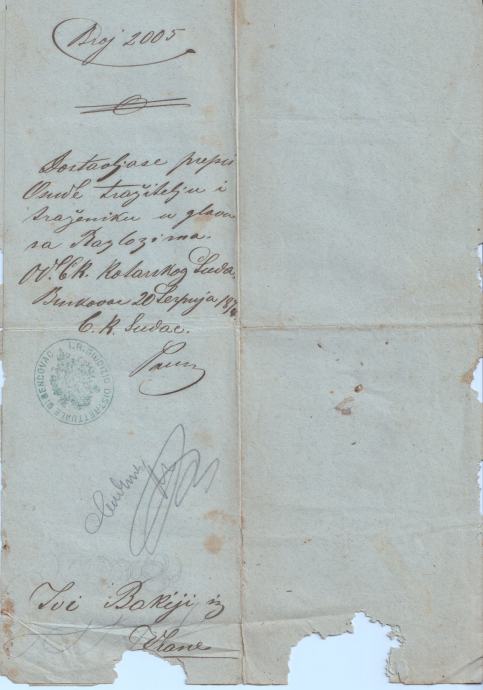 Broj 2005
Dostavljase prepis
Osude tražitelju i
traženiku u glavu
sa Razlozima.
Od C. K. Kotarskog Suda
Benkovac 20 Serpnja 187
C. K. Sudac.
I. R. GIUDIZIO DISTRETTUALE DI BENCOVAC
Ivi Bakiji iz
Vrane